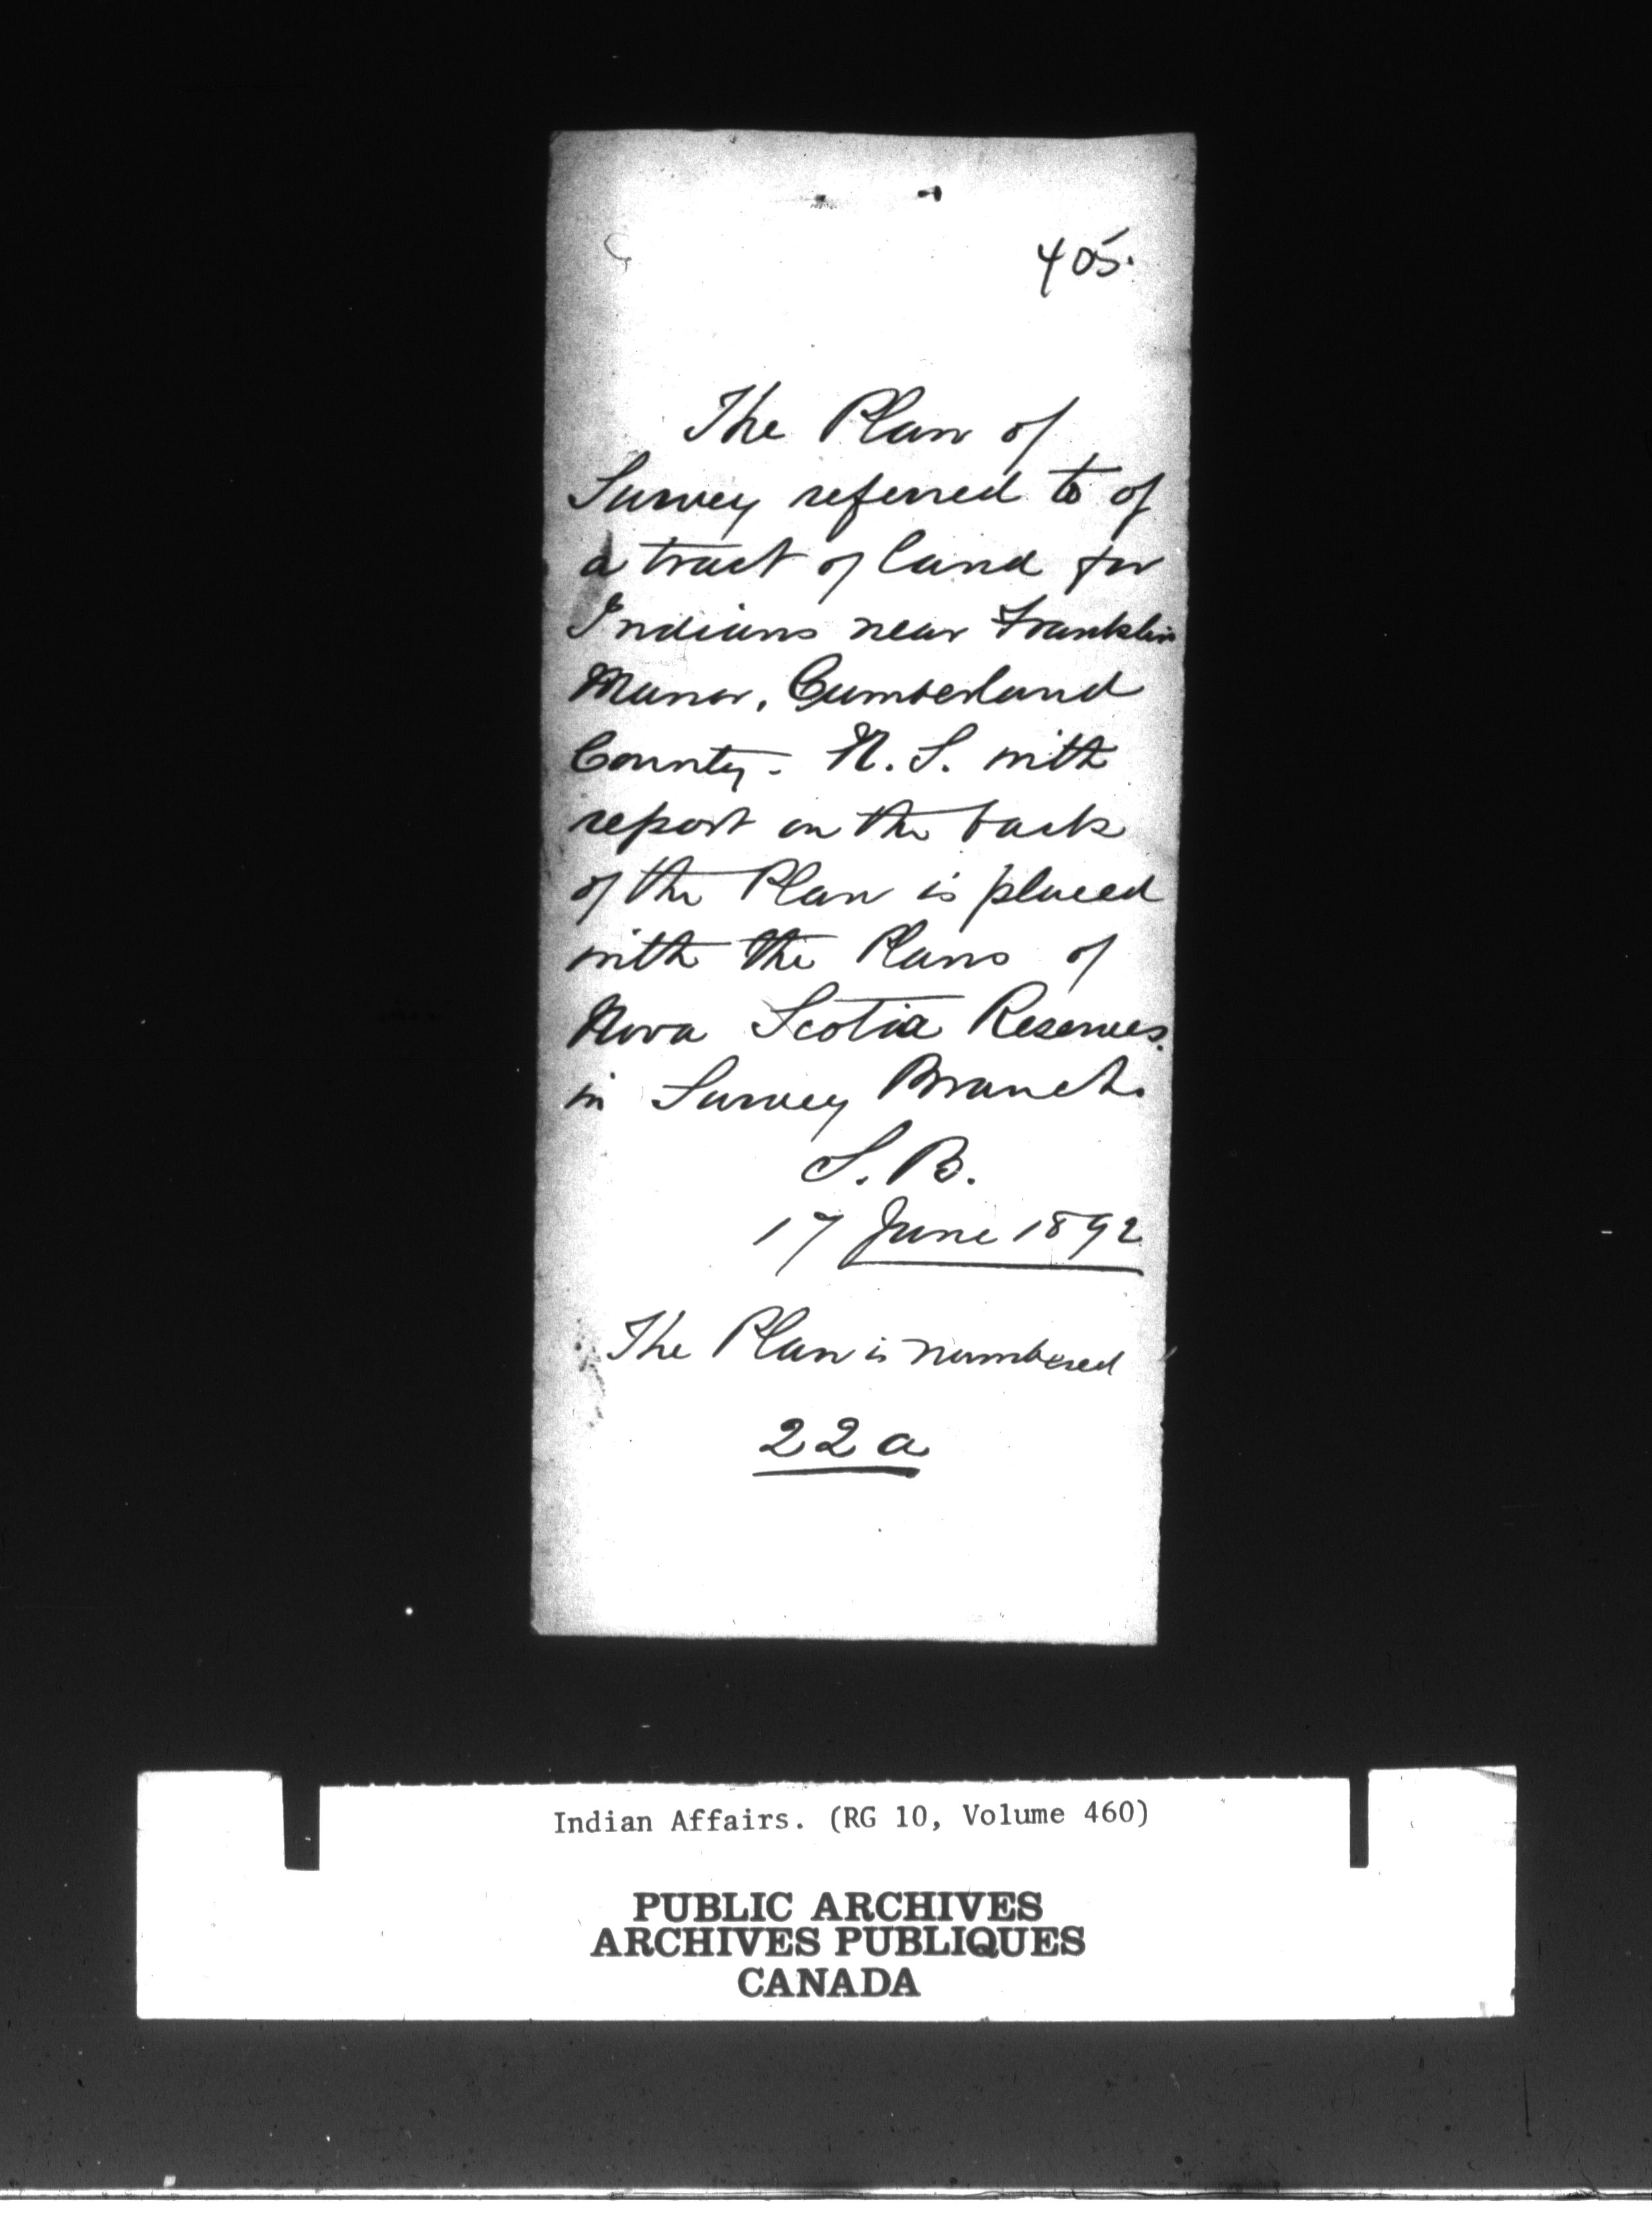 405.
The Plan of
Survey referred to of
a tract of land for
Indians near Franklin
Manor, Cumberland
County - N. S. with
report on the back
of the Plan is placed
with the Plans of
Nova Scotia Reserves.
in Survey Branch.
S. B.
17 June 1892
The Plan is numbered
22 a
Indian Affairs. (RG 10, Volume 460)
PUBLIC ARCHIVES
ARCHIVES PUBLIQUES
CANADA